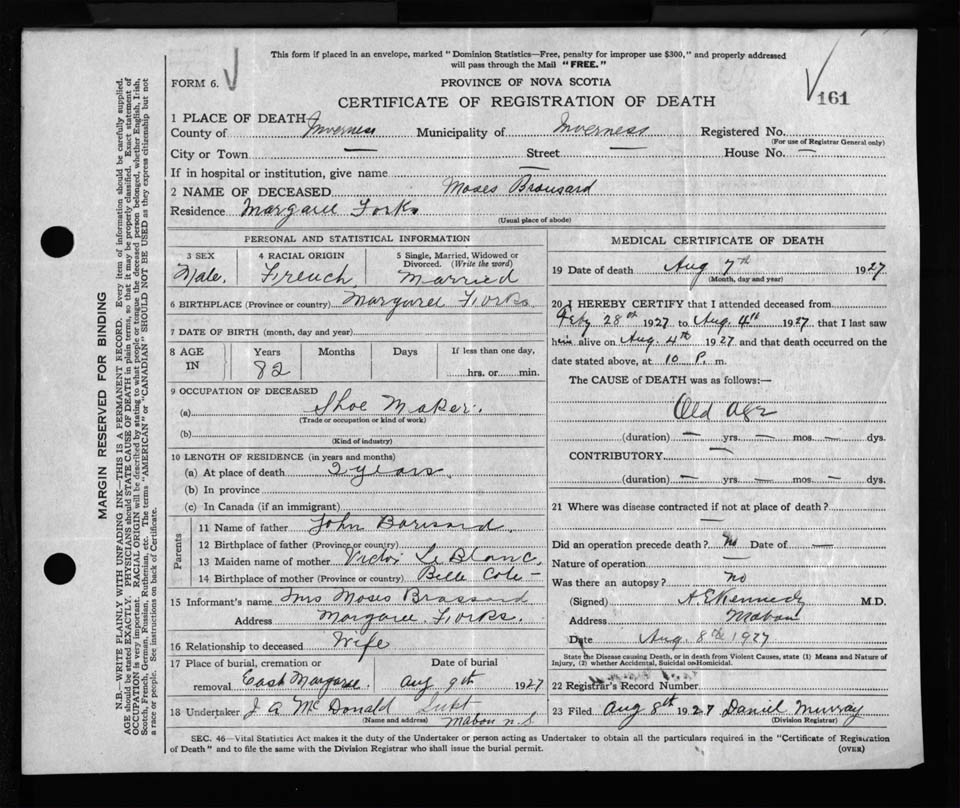 This form if placed in an envelope, marked "Dominion Statistics—Free, penalty for improper use $300," and properly addressed
will pass through the Mail "FREE."
FORM 6.
PROVINCE OF NOVA SCOTIA
CERTIFICATE OF REGISTRATION OF DEATH
161
1 PLACE OF DEATH
County of Inverness Municipality of Inverness Registered No.
(For use of Registrar General only)
City or Town — Street — House No. —
If in hospital or institution, give name —
2 NAME OF DECEASED Moses Brousard
Residence Margaree Forks
(Usual place of abode)
PERSONAL AND STATISTICAL INFORMATION
3 SEX 4 RACIAL ORIGIN 5 Single, Married, Widowed or
Divorced. (Write the word)
Male. French. Married
6 BIRTHPLACE (Province or country) Margaree Forks.
7 DATE OF BIRTH (month, day and year)
8 AGE Years Months Days If less than one day,
IN 82 hrs. or min.
9 OCCUPATION OF DECEASED
(a) Shoe Maker.
(Trade or occupation or kind of work)
(b)
(Kind of industry)
10 LENGTH OF RESIDENCE (in years and months)
(a) At place of death 2 years
(b) In province
(c) In Canada (if an immigrant)
Parents
11 Name of father John Borrsard
12 Birthplace of father (Province or country)
13 Maiden name of mother Victori Le Blanc.
14 Birthplace of mother (Province or country) Belle Cote -
15 Informant's name Mrs Moses Brassard
Address Margaree Forks.
16 Relationship to deceased Wife
17 Place of burial, cremation or Date of burial
removal East Margaree. Aug 9th 1927
18 Undertaker J A McDonald Supt
(Name and address) Mabou N.S.
MEDICAL CERTIFICATE OF DEATH
19 Date of death Aug 7th 1927
(Month, day and year)
20 I HEREBY CERTIFY that I attended deceased from
Feby 28th 1927 to Aug. 4th 1927, that I last saw
him alive on Aug. 4th 1927 and that death occurred on the
date stated above, at 10 P. m.
The CAUSE of DEATH was as follows:—
Old age
(duration) — yrs. — mos. — dys.
CONTRIBUTORY —
(duration) — yrs. — mos. — dys.
21 Where was disease contracted if not at place of death?
—
Did an operation precede death? No Date of —
Nature of operation
Was there an autopsy? no
(Signed) A.E Kennedy M.D.
Address Mabou
Date Aug 8th 1927
State the Disease causing Death, or in death from Violent Causes, state (1) Means and Nature of
Injury, (2) whether Accidental, Suicidal or Homicidal.
22 Registrar's Record Number
23 Filed Aug 8th 1927 Daniel Murray
(Division Registrar)
SEC. 46—Vital Statistics Act makes it the duty of the Undertaker or person acting as Undertaker to obtain all the particulars required in the "Certificate of Registration
of Death" and to file the same with the Division Registrar who shall issue the burial permit. (OVER)
MARGIN RESERVED FOR BINDING
N.B.—WRITE PLAINLY WITH UNFADING INK—THIS IS A PERMANENT RECORD. Every item of information should be carefully supplied.
AGE should be stated EXACTLY. PHYSICIANS should STATE CAUSE OF DEATH in plain terms, so that it may be properly classified. Exact statement of
OCCUPATION is very important. RACIAL ORIGIN will be described by stating to what people or tongue the deceased person belonged, whether English, Irish,
Scotch, French, German, Russian, Ruthenian, etc. The terms "AMERICAN" or "CANADIAN" SHOULD NOT BE USED as they express citizenship but not
a race or people. See instructions on back of Certificate.